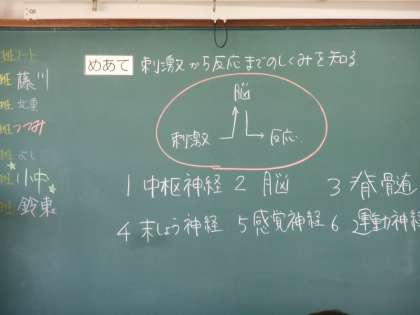 めあて 刺激から反応までのしくみを知る
脳
刺激 反応
1 中枢神経 2 脳 3 脊髄
4 末しょう神経 5 感覚神経 6 運動神経
班ノート
班 藤川
班
班 つつみ
班 よし
班 小中
班 鈴東